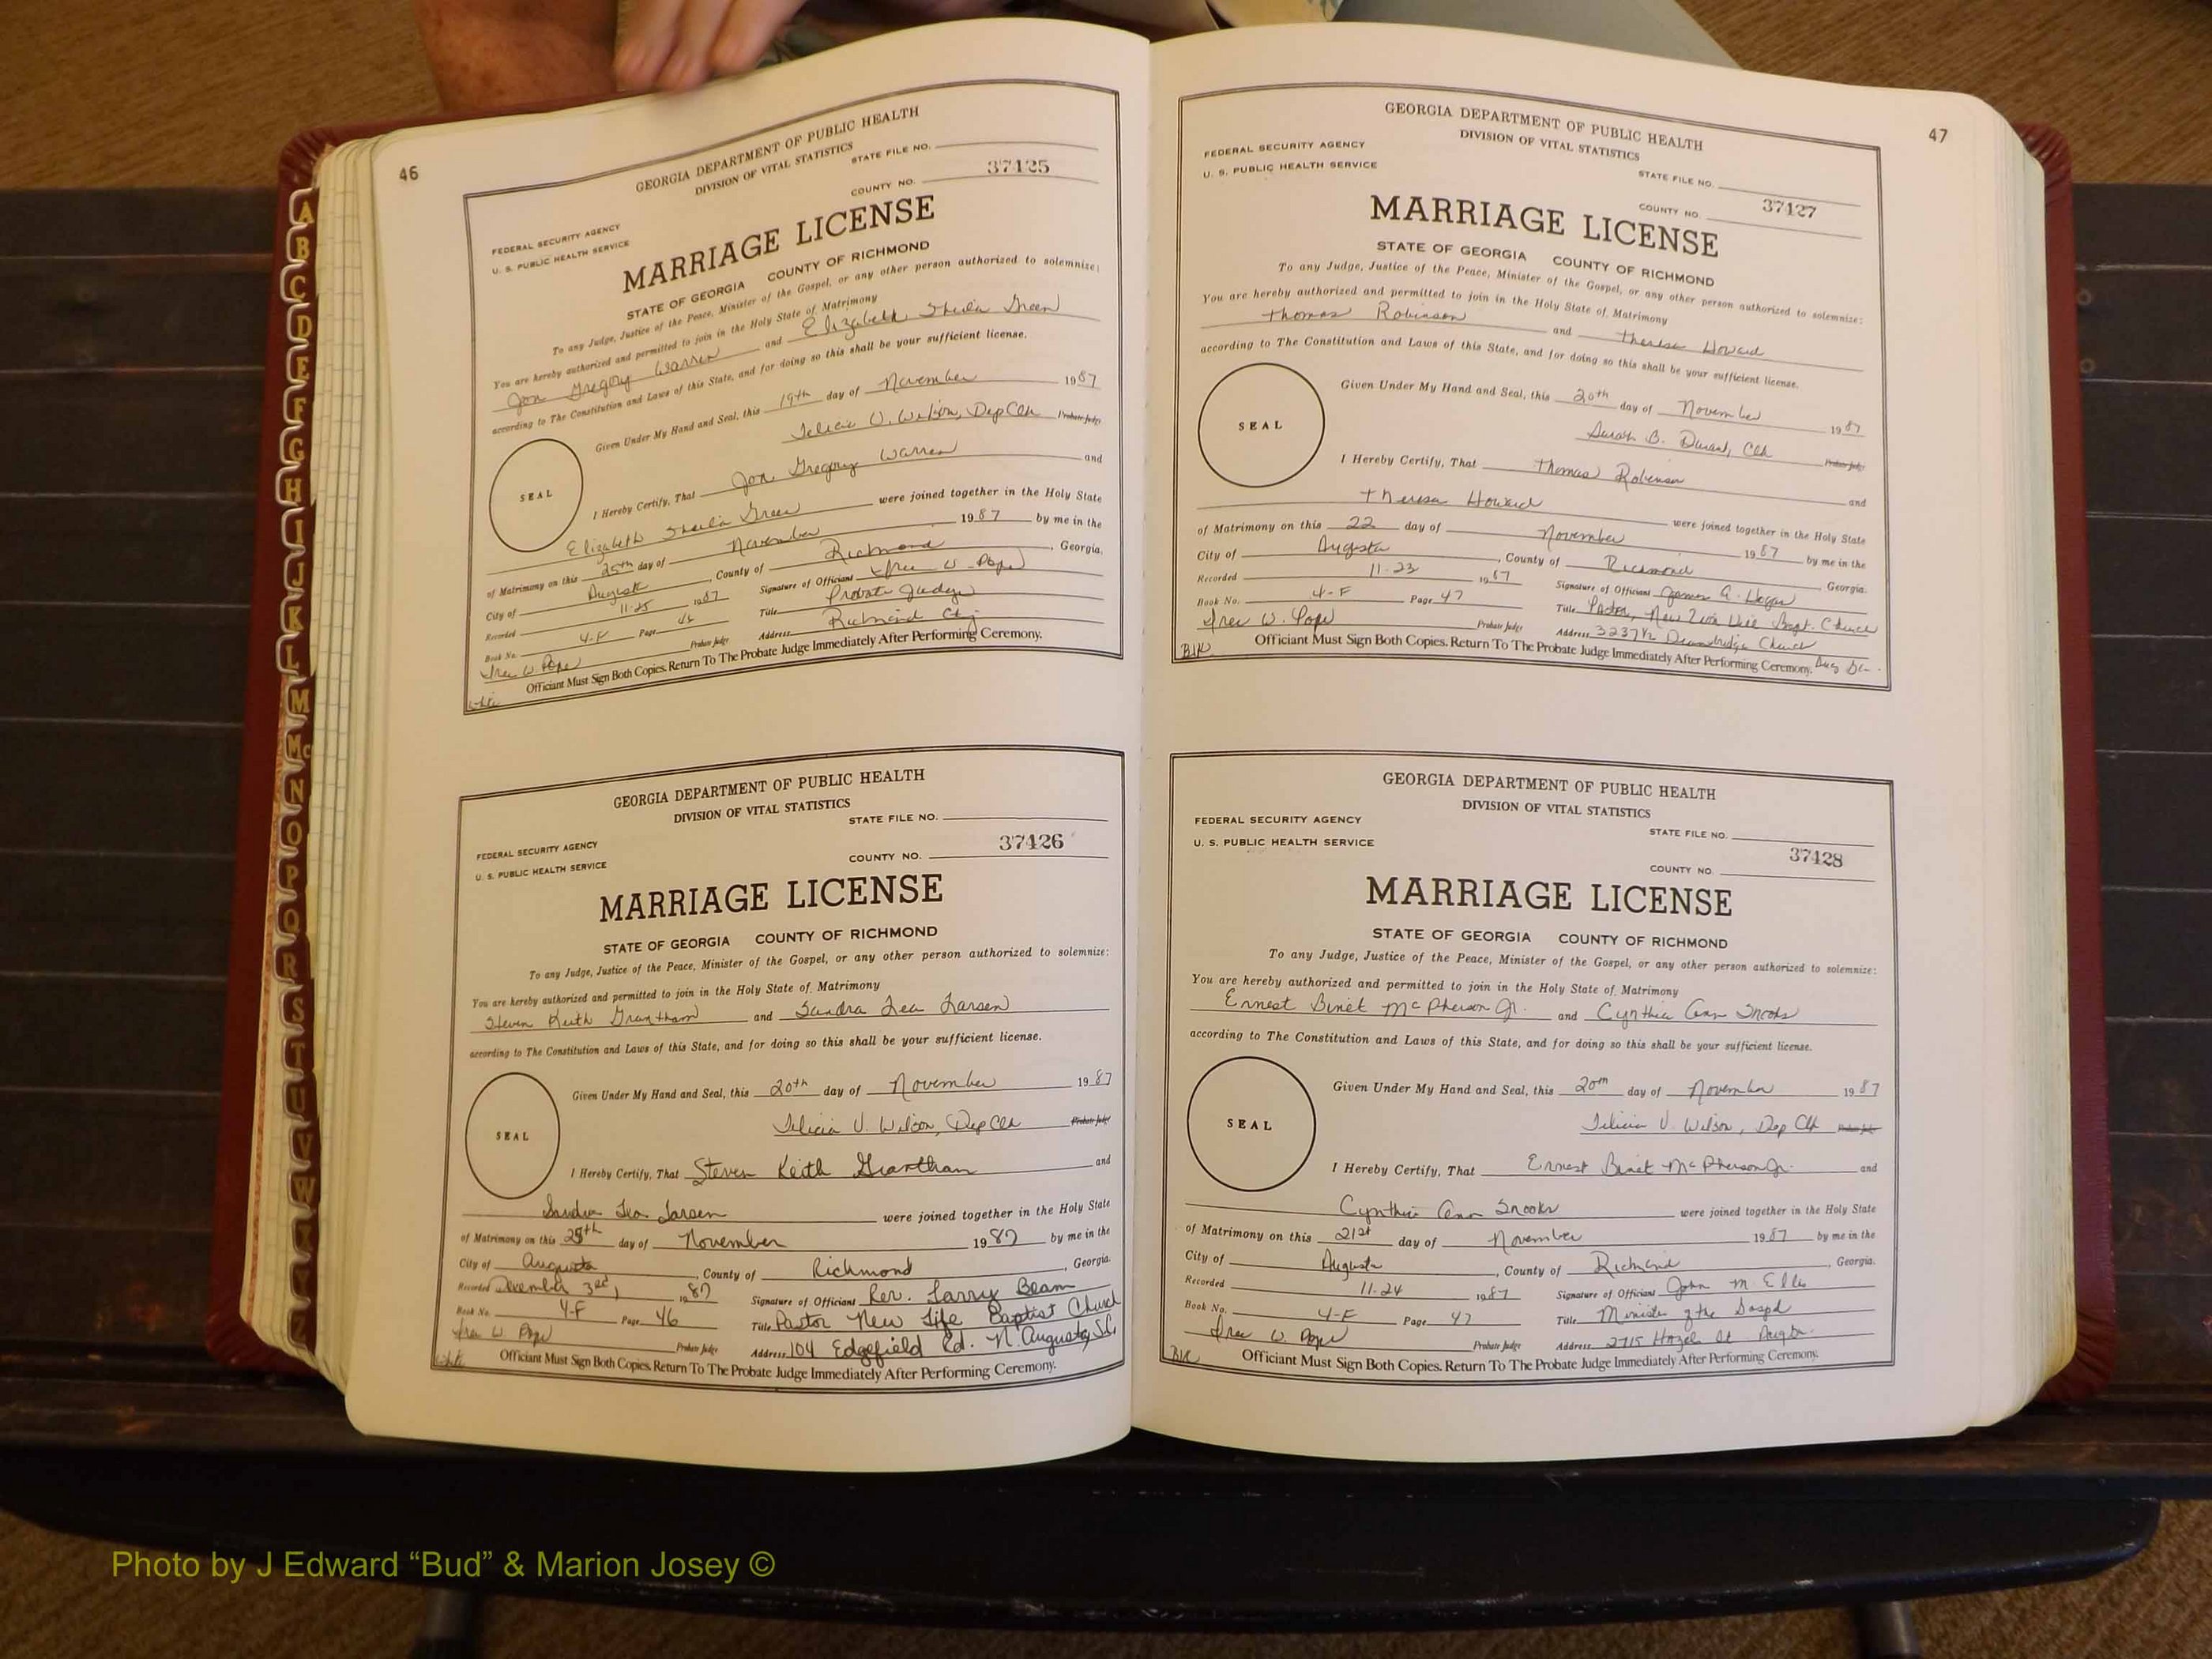 46
GEORGIA DEPARTMENT OF PUBLIC HEALTH
DIVISION OF VITAL STATISTICS
STATE FILE NO.
37425
COUNTY NO.
FEDERAL SECURITY AGENCY
U. S. PUBLIC HEALTH SERVICE
MARRIAGE LICENSE
STATE OF GEORGIA COUNTY OF RICHMOND
To any Judge, Justice of the Peace, Minister of the Gospel, or any other person authorized to solemnize:
You are hereby authorized and permitted to join in the Holy State of Matrimony
Jon Gregory Warren and Elizabeth Sheila Green
according to The Constitution and Laws of this State, and for doing so this shall be your sufficient license.
Given Under My Hand and Seal, this 19th day of November 1987
Felicia V. Wilson, Dep Clk Probate Judge
SEAL
I Hereby Certify, That Jon Gregory Warren and
Elizabeth Sheila Green were joined together in the Holy State
of Matrimony on this 25th day of November 1987 by me in the
City of Augusta, County of Richmond, Georgia.
Recorded 11-25 1987 Signature of Officiant W. Pope
Book No. 4-F Page Title Probate Judge
W. Pope Probate Judge Address Richmond Cty
Officiant Must Sign Both Copies. Return To The Probate Judge Immediately After Performing Ceremony.
White
GEORGIA DEPARTMENT OF PUBLIC HEALTH
DIVISION OF VITAL STATISTICS
STATE FILE NO.
37426
COUNTY NO.
FEDERAL SECURITY AGENCY
U. S. PUBLIC HEALTH SERVICE
MARRIAGE LICENSE
STATE OF GEORGIA COUNTY OF RICHMOND
To any Judge, Justice of the Peace, Minister of the Gospel, or any other person authorized to solemnize:
You are hereby authorized and permitted to join in the Holy State of Matrimony
Steven Keith Grantham and Sandra Lea Larsen
according to The Constitution and Laws of this State, and for doing so this shall be your sufficient license.
Given Under My Hand and Seal, this 20th day of November 1987
Felicia V. Wilson, Dep Clk Probate Judge
SEAL
I Hereby Certify, That Steven Keith Grantham and
Sandra Lea Larsen were joined together in the Holy State
of Matrimony on this 25th day of November 1987 by me in the
City of Augusta, County of Richmond, Georgia.
Recorded December 3rd, 1987 Signature of Officiant Rev. Larry Beam
Book No. 4-F Page 46 Title Pastor New Life Baptist Church
W. Pope Probate Judge Address 104 Edgefield Rd. N. Augusta, SC.
Officiant Must Sign Both Copies. Return To The Probate Judge Immediately After Performing Ceremony.
White
47
GEORGIA DEPARTMENT OF PUBLIC HEALTH
DIVISION OF VITAL STATISTICS
FEDERAL SECURITY AGENCY
U. S. PUBLIC HEALTH SERVICE
STATE FILE NO.
37427
COUNTY NO.
MARRIAGE LICENSE
STATE OF GEORGIA COUNTY OF RICHMOND
To any Judge, Justice of the Peace, Minister of the Gospel, or any other person authorized to solemnize:
You are hereby authorized and permitted to join in the Holy State of Matrimony
Thomas Robinson and Theresa Howard
according to The Constitution and Laws of this State, and for doing so this shall be your sufficient license.
Given Under My Hand and Seal, this 20th day of November 1987
Sarah B. Durant, Clk Probate Judge
SEAL
I Hereby Certify, That Thomas Robinson and
Theresa Howard were joined together in the Holy State
of Matrimony on this 22 day of November 1987 by me in the
City of Augusta, County of Richmond Georgia.
Recorded 11-23 1987 Signature of Officiant James A. Hogan
Book No. 4-F Page 47 Title Pastor, New Zion Hill Bapt. Church
W. Pope Probate Judge Address 3237½ Deansbridge Church
Officiant Must Sign Both Copies. Return To The Probate Judge Immediately After Performing Ceremony. Aug
Blk
GEORGIA DEPARTMENT OF PUBLIC HEALTH
DIVISION OF VITAL STATISTICS
FEDERAL SECURITY AGENCY
U. S. PUBLIC HEALTH SERVICE
STATE FILE NO.
37428
COUNTY NO.
MARRIAGE LICENSE
STATE OF GEORGIA COUNTY OF RICHMOND
To any Judge, Justice of the Peace, Minister of the Gospel, or any other person authorized to solemnize:
You are hereby authorized and permitted to join in the Holy State of Matrimony
Ernest Binet McPherson Jr. and Cynthia Ann Snooks
according to The Constitution and Laws of this State, and for doing so this shall be your sufficient license.
Given Under My Hand and Seal, this 20th day of November 1987
Felicia V. Wilson, Dep Clk Probate Judge
SEAL
I Hereby Certify, That Ernest Binet McPherson Jr. and
Cynthia Ann Snooks were joined together in the Holy State
of Matrimony on this 21st day of November 1987 by me in the
City of Augusta, County of Richmond, Georgia.
Recorded 11-24 1987 Signature of Officiant John M Ellis
Book No. 4-F Page 47 Title Minister of the Gospel
W. Pope Probate Judge Address 2715 Hazel St Augta.
Officiant Must Sign Both Copies. Return To The Probate Judge Immediately After Performing Ceremony.
Blk
A
B
C
D
E
F
G
H
I
J
K
L
M
Mc
N
O
P
Q
R
S
T
U
V
W
X
Y
Z
Photo by J Edward “Bud” & Marion Josey ©